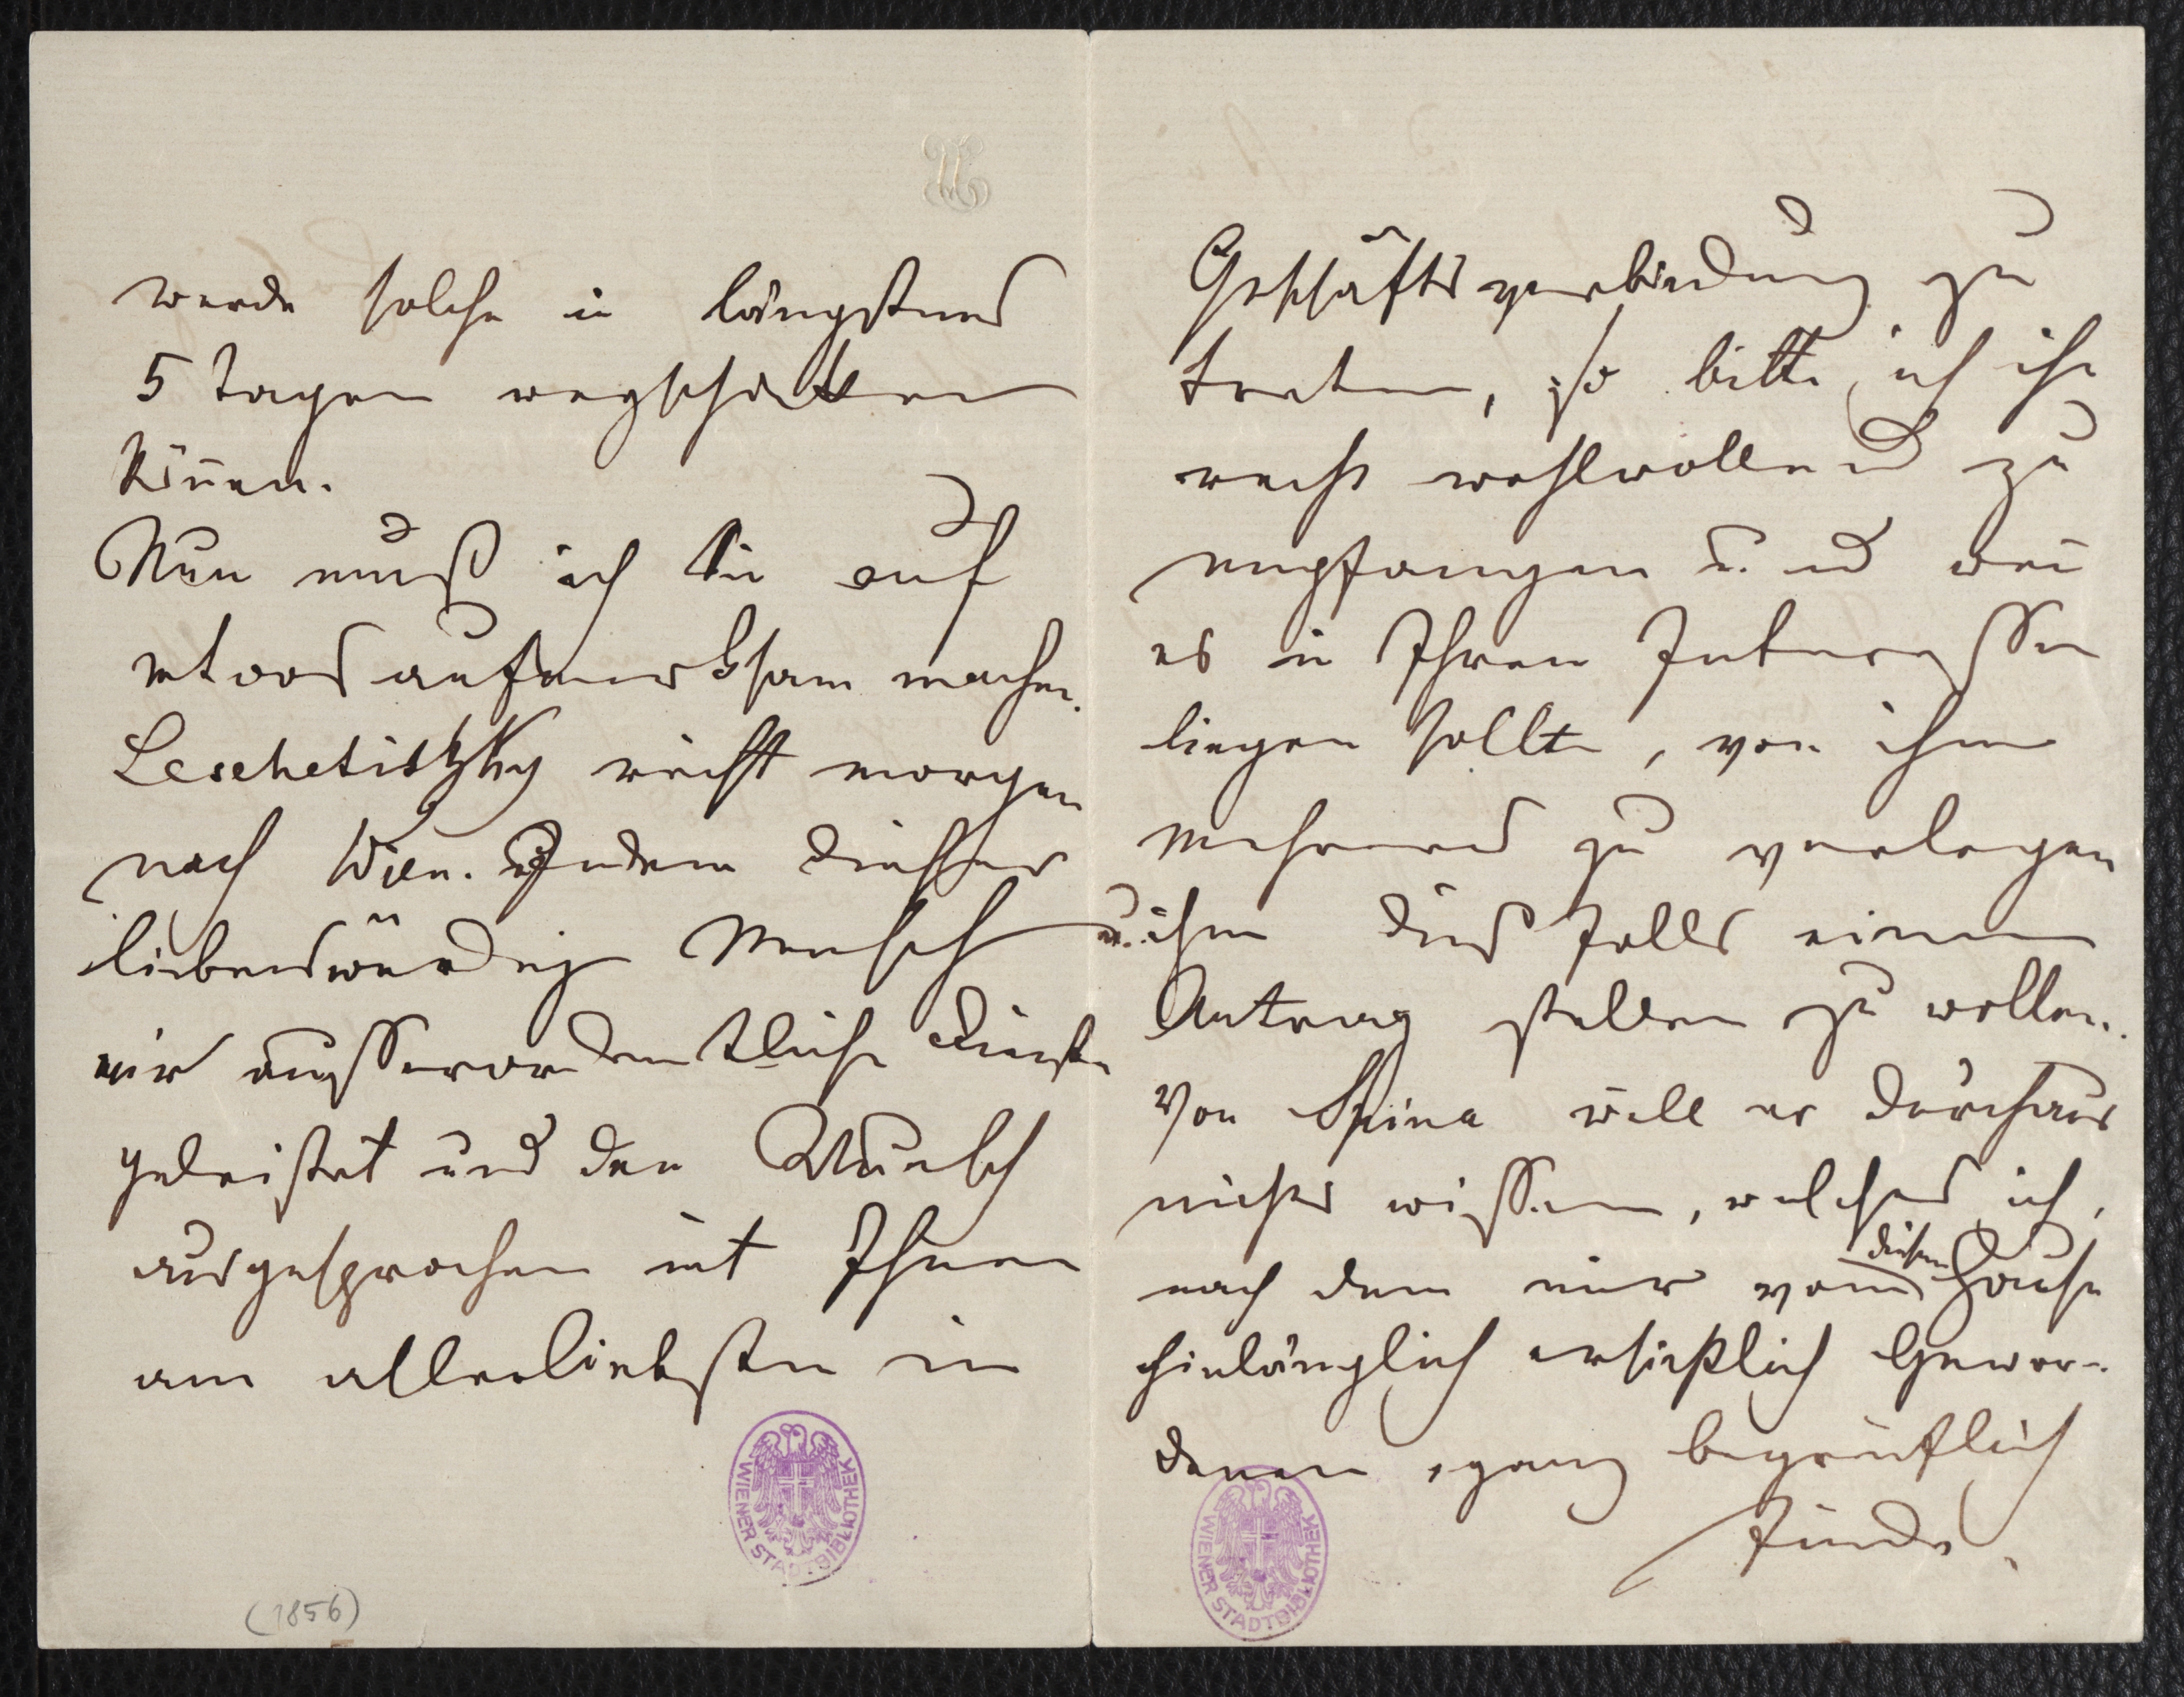 werde solche in längstens
5 Tagen wegschicken
können.
Nun muß ich Sie auf
etwas aufmerksam machen.
Leschetitzky reist morgen
nach Wien. Indem dieser
liebenswürdige Mensch
mir ausserordentliche Dienste
geleistet und den Wunsch
ausgesprochen mit Ihnen
am allerliebsten in
(1856)
WIENER STADTBIBLIOTHEK
Geschäftsverbindung zu
treten, so bitte ich ihn
recht wohlwollend zu
empfangen u. wenn
es in Ihren Interessen
liegen sollte, von ihm
mehreres zu verlegen
u. ihm dies Falls einen
Antrag stellen zu wollen.
Von Spina will er durchaus
nichts wissen, welches ich,
nach dem mir von diesem Hause
hinlänglich ersichtlich Gewor-
denen, ganz begreiflich
finde.
WIENER STADTBIBLIOTHEK